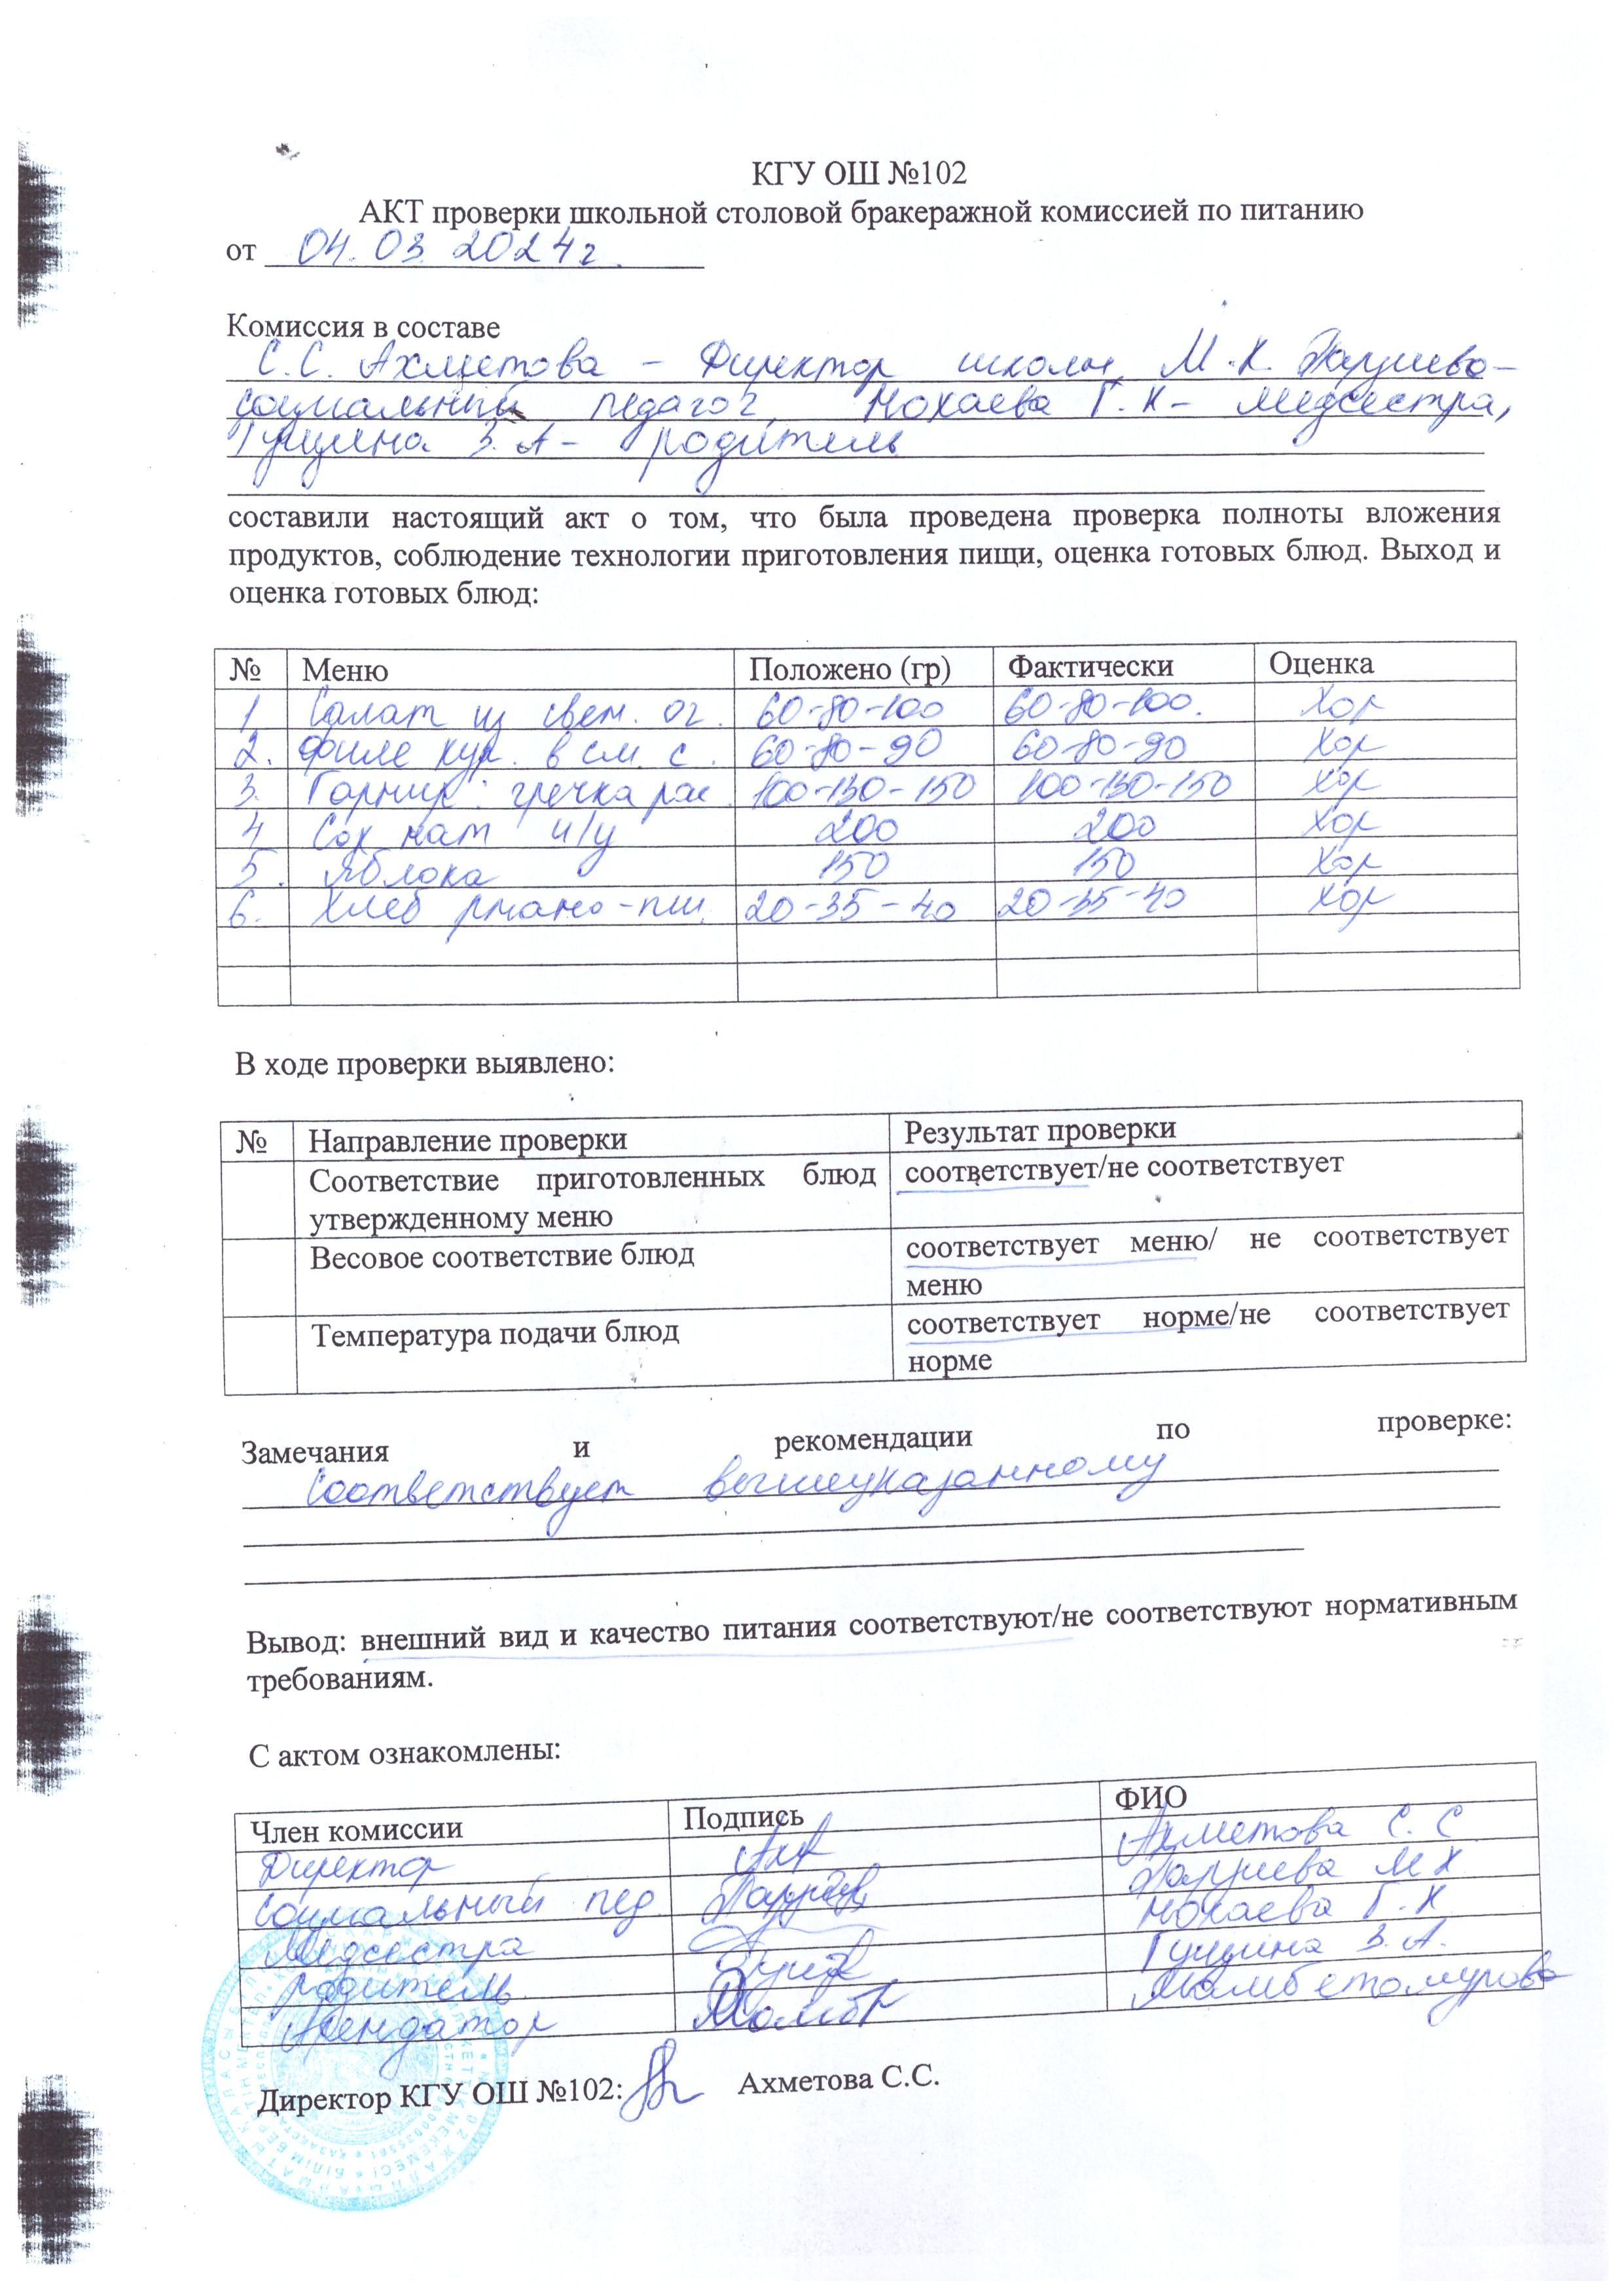 КГУ ОШ №102
АКТ проверки школьной столовой бракеражной комиссией по питанию
от 04.03.2024г.
Комиссия в составе
С.С. Ахметова – Директор школы, М.К.
социальный педагог, Нокаева Г.К – медсестра,
Гущина З.А – родитель
составили настоящий акт о том, что была проведена проверка полноты вложения
продуктов, соблюдение технологии приготовления пищи, оценка готовых блюд. Выход и
оценка готовых блюд:
№ Меню Положено (гр) Фактически Оценка
1 Салат из свеж. ог. 60-80-100 60-80-100. Хор
2. Филе кур. в см. с. 60-80-90 60-80-90 Хор
3. Гарнир: гречка рас. 100-130-150 100-130-150 Хор
4 Сок нат 200 200 Хор
5. Яблока 150 150 Хор
6. Хлеб ржано-пш. 20-35-40 20-35-40 Хор
В ходе проверки выявлено:
№ Направление проверки Результат проверки
Соответствие приготовленных блюд соответствует/не соответствует
утвержденному меню
Весовое соответствие блюд соответствует меню/ не соответствует
меню
Температура подачи блюд соответствует норме/не соответствует
норме
Замечания и рекомендации по проверке:
Соответствует вышеуказанному
Вывод: внешний вид и качество питания соответствуют/не соответствуют нормативным
требованиям.
С актом ознакомлены:
Член комиссии Подпись ФИО
Директор Ахметова С.С
Социальный пед.
Медсестра Нокаева Г.К
Родитель Гущина З.А.
Арендатор
Директор КГУ ОШ №102: Ахметова С.С.